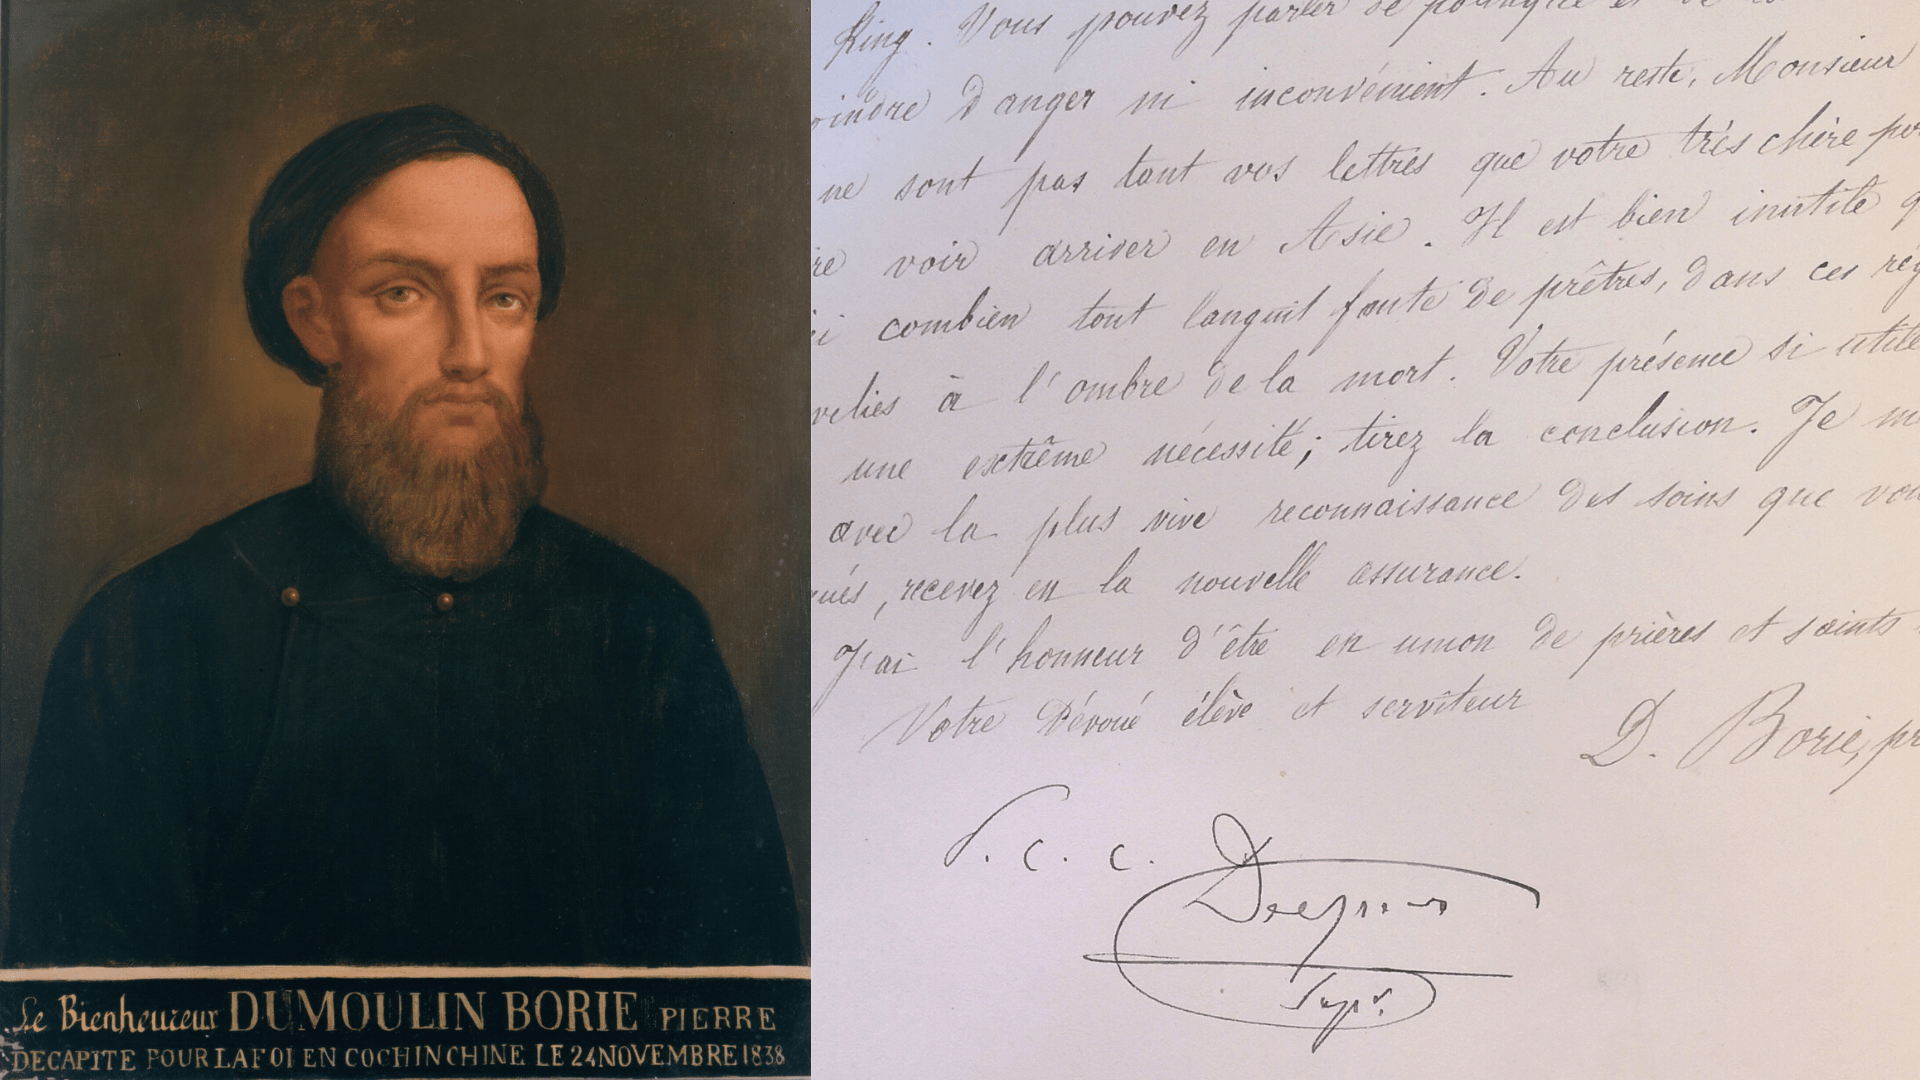 Le Bienheureux DUMOULIN BORIE PIERRE
DECAPITE POUR LA FOI EN COCHINCHINE LE 24 NOVEMBRE 1838
King. Vous pouvez parler de
oindre danger ni inconvénient. Au reste, Monsieur
ne sont pas tant vos lettres que votre très chère per
re voir arriver en Asie. Il est bien inutile q
i combien tout languit faute de prêtres, dans ces rég
velies à l'ombre de la mort. Votre présence si utile
une extrême nécessité; tirez la conclusion. Je m
avec la plus vive reconnaissance des soins que vou
ués, recevez en la nouvelle assurance.
J'ai l'honneur d'être en union de prières et saints
Votre dévoué élève et serviteur
D. Borie, pr
P. C. C.
Supr.